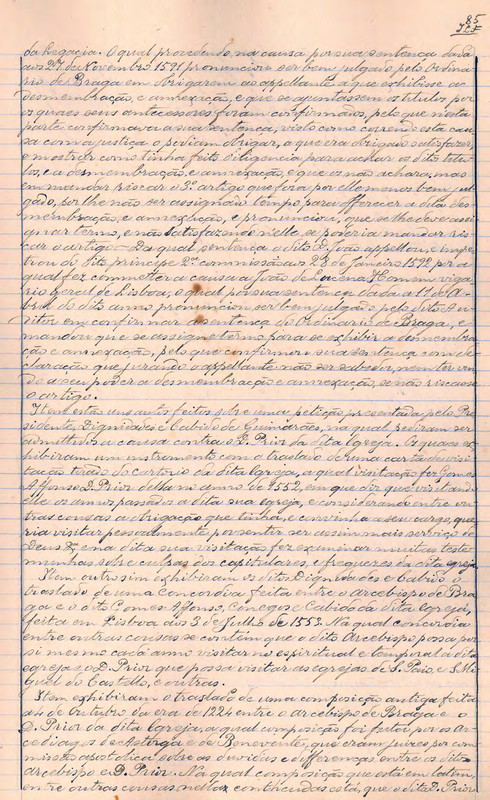 85
da Legacia. O qual procedendo na causa por sua sentença dada
aos 27 de Novembro 1591 pronunciou ser bem julgado pelo Ordina
rio de Braga em obrigarem ao appellante a que exhibisse ao
desmembração, e annexação, e que se ajuntassem os titulos por
os quaes seus antecessores foram confirmados, pelo que nesta
parte confirmava a sua sentença, visto como correndo esta cau
sa com a justiça o podiam obrigar, a que era obrigado satisfazer,
e mostrar como tinha feito diligencia para achar os ditos titu
los, e a desmembração, e annexação, e que os não achara, mas
em mandar riscar o 2º artigo que fora por elle menos bem jul
gado, por lhe não ser assignado tempo para offerecer a dita des
membração, e annexação, e pronunciou, que se lhe devia assi
gnar termo, e não satisfazendo nelle se poderia mandar ris
car o artigo — Da qual sentença o dito D. João appellou, e impe
trou do dito principe 2ª commissão aos 23 de Janeiro 1592 por a
qual fez commetter a causa a João de Lucena Homem viga
rio geral de Lisboa, o qual por sua sentença dada a 17 de A
bril do dito anno pronunciou ser bem julgado pelo dito Au
ditor em confirmar a sentença do Ordinario de Braga, e
mandou que se assigne termo para se exhibir a desmembra
ção e annexação, pelo que confirmou sua sentença com de
claração que jurando o appellante não ser sabedor, nem ter vin
do a seu poder a desmembração e annexação, se não riscasse
o artigo.
Item estão uns autos feitos sobre uma petição presentada pelo Pre
sidente, Dignidades e Cabido de Guimarães, na qual pediram ser
admittidos a causa contra o D. Prior da dita Egreja. Os quaes ex
hibiram um instrumento com o traslado de uma carta de visi
tação tirado do cartorio da dita Egreja, a qual visitação fez Gomes
Affonso D. Prior della no anno de 1552, em que diz que visitan
do elle os annos passados a dita sua egreja, e considerando entre ou
tras cousas a obrigação que tinha, e convinha a seu cargo, que
ria visitar pessoalmente por sentir ser assim mais serviço de
Deus &, e na dita sua visitação fez examinar muitas teste
munhas sobre culpas dos capitulares, e freguezes da dita egreja
Item outrossim exhibiram os ditos Dignidades e Cabido o
traslado de uma Concordia feita entre o Arcebispo de Bra
ga e o dito Gomes Affonso, Conegos e Cabido da dita Egreja,
feita em Lisboa aos 3 de Julho de 1553. Na qual concordia
entre outras cousas se contém que o dito Arcebispo possa por
si mesmo cada anno visitar no espiritual e temporal a dita
egreja, e o D. Prior que possa visitar as egrejas de S. Paio, e S. Mi
guel do Castello, e outras.
Item exhibiram o traslado de uma composição antiga feita
a 4 de Outubro da era de 1224 entre o Arcebispo de Braga e o
D. Prior da dita Egreja, a qual composição foi feita por os Ar
cediagos de Astorga e de Benavente, que eram juizes por com
missão apostolica sobre as duvidas e differenças entre os ditos
Arcebispo e D. Prior. Na qual composição que está em latim,
entre outras cousas nella conteudas está, que o dito D. Prior